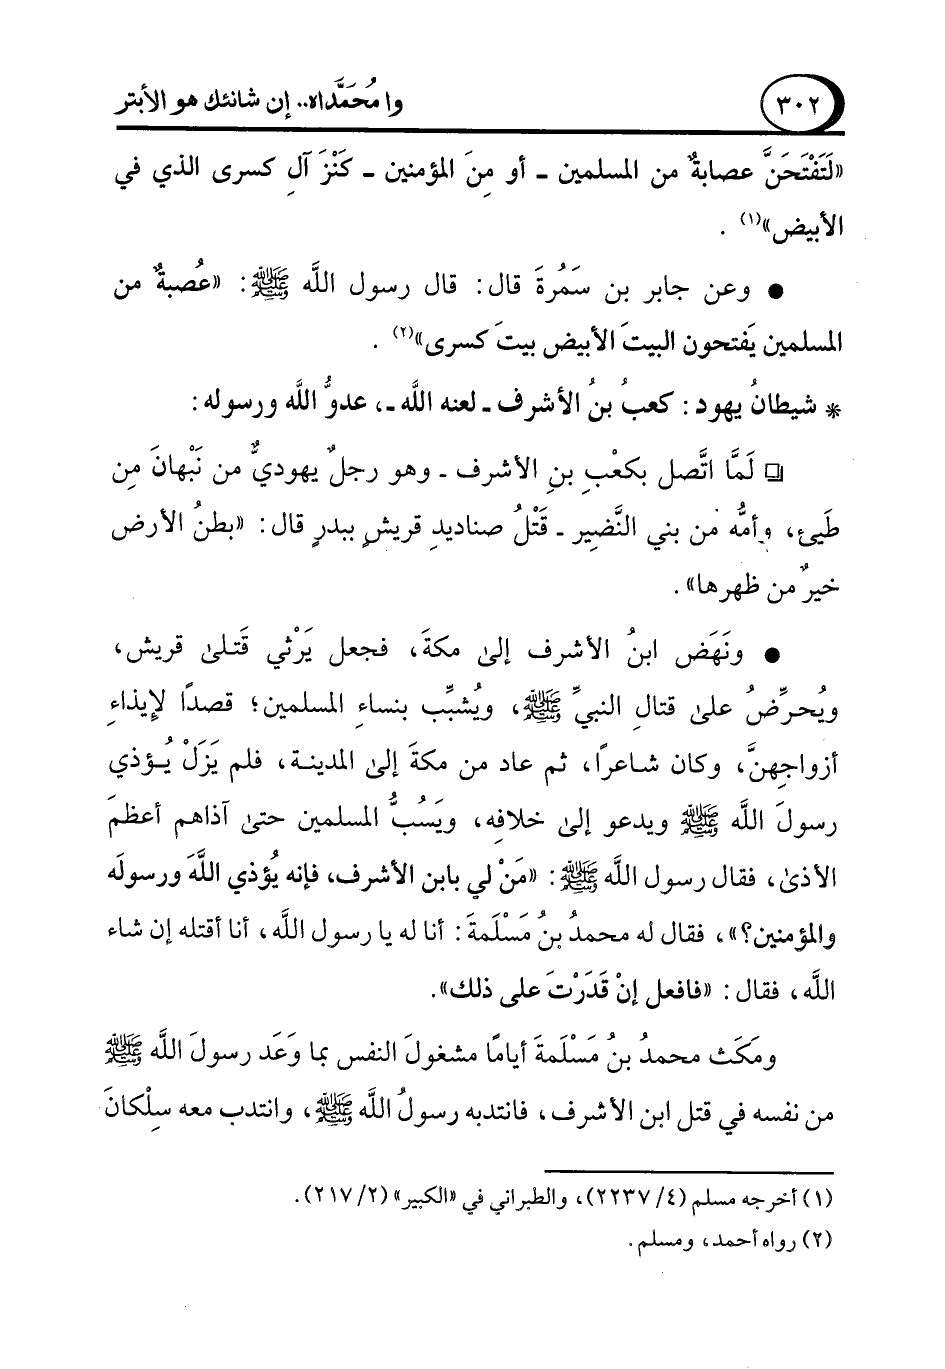 ٣٠٢
وا مُحَمَّداه.. إن شانئك هو الأبتر
«لَتَفْتَحَنَّ عصابةٌ من المسلمين - أو مِنَ المؤمنين - كَنْزَ آلِ كسرى الذي في
الأبيض»(١) .
● وعن جابر بن سَمُرةَ قال: قال رسول اللَّه ﷺ: «عُصبةٌ من
المسلمين يَفتحون البيتَ الأبيض بيتَ كسرى»(٢) .
* شيطانُ يهود: كعبُ بنُ الأشرف - لعنه اللَّه -، عدوُّ اللَّه ورسوله:
❏ لَمَّا اتَّصل بكعْبِ بنِ الأشرف - وهو رجلٌ يهوديٌّ من نَبْهانَ مِن
طَيئ، وأمُّه من بني النَّضِير - قَتْلُ صناديدِ قريشٍ ببدرٍ قال: «بطنُ الأرض
خيرٌ من ظهرها».
● ونَهَض ابنُ الأشرف إلىٰ مكةَ، فجعل يَرْثي قَتلىٰ قريش،
ويُحرِّضُ علىٰ قتالِ النبيِّ ﷺ، ويُشبِّب بنساءِ المسلمين؛ قصدًا لإيذاءِ
أزواجِهنَّ، وكان شاعرًا، ثم عاد من مكةَ إلىٰ المدينة، فلم يَزَلْ يُؤذي
رسولَ اللَّه ﷺ ويدعو إلىٰ خلافِه، ويَسُبُّ المسلمين حتىٰ آذاهم أعظمَ
الأذىٰ، فقال رسول اللَّه ﷺ: «مَنْ لي بابن الأشرف، فإنه يُؤذي اللَّهَ ورسولَه
والمؤمنين؟»، فقال له محمدُ بنُ مَسْلَمةَ: أنا له يا رسول اللَّه، أنا أقتله إن شاء
اللَّه، فقال: «فافعل إنْ قَدَرْتَ على ذلك».
ومَكَث محمدُ بنُ مَسْلَمةَ أيامًا مشغولَ النفس بما وَعَد رسولَ اللَّه ﷺ
من نفسه في قتل ابن الأشرف، فانتدبه رسولُ اللَّه ﷺ، وانتدب معه سِلْكانَ
(١) أخرجه مسلم (٤/ ٢٢٣٧)، والطبراني في «الكبير» (٢/ ٢١٧).
(٢) رواه أحمد، ومسلم.